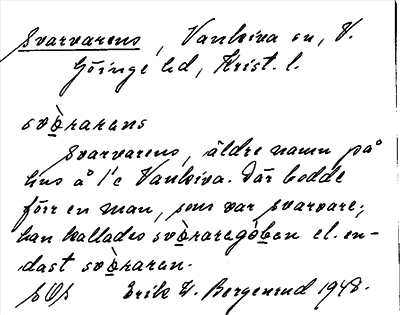 Svarvarens, Vankiva sn, V.
Göinge hd, Krist. l.
svòrarans
Svarvarens, äldre namn på
hus å 1'c Vankiva. Där bodde
förr en man, som var svarvare;
han kallades svòraregòben el. en-
dast svòraren.
Erik W. Bergenrud 1948.